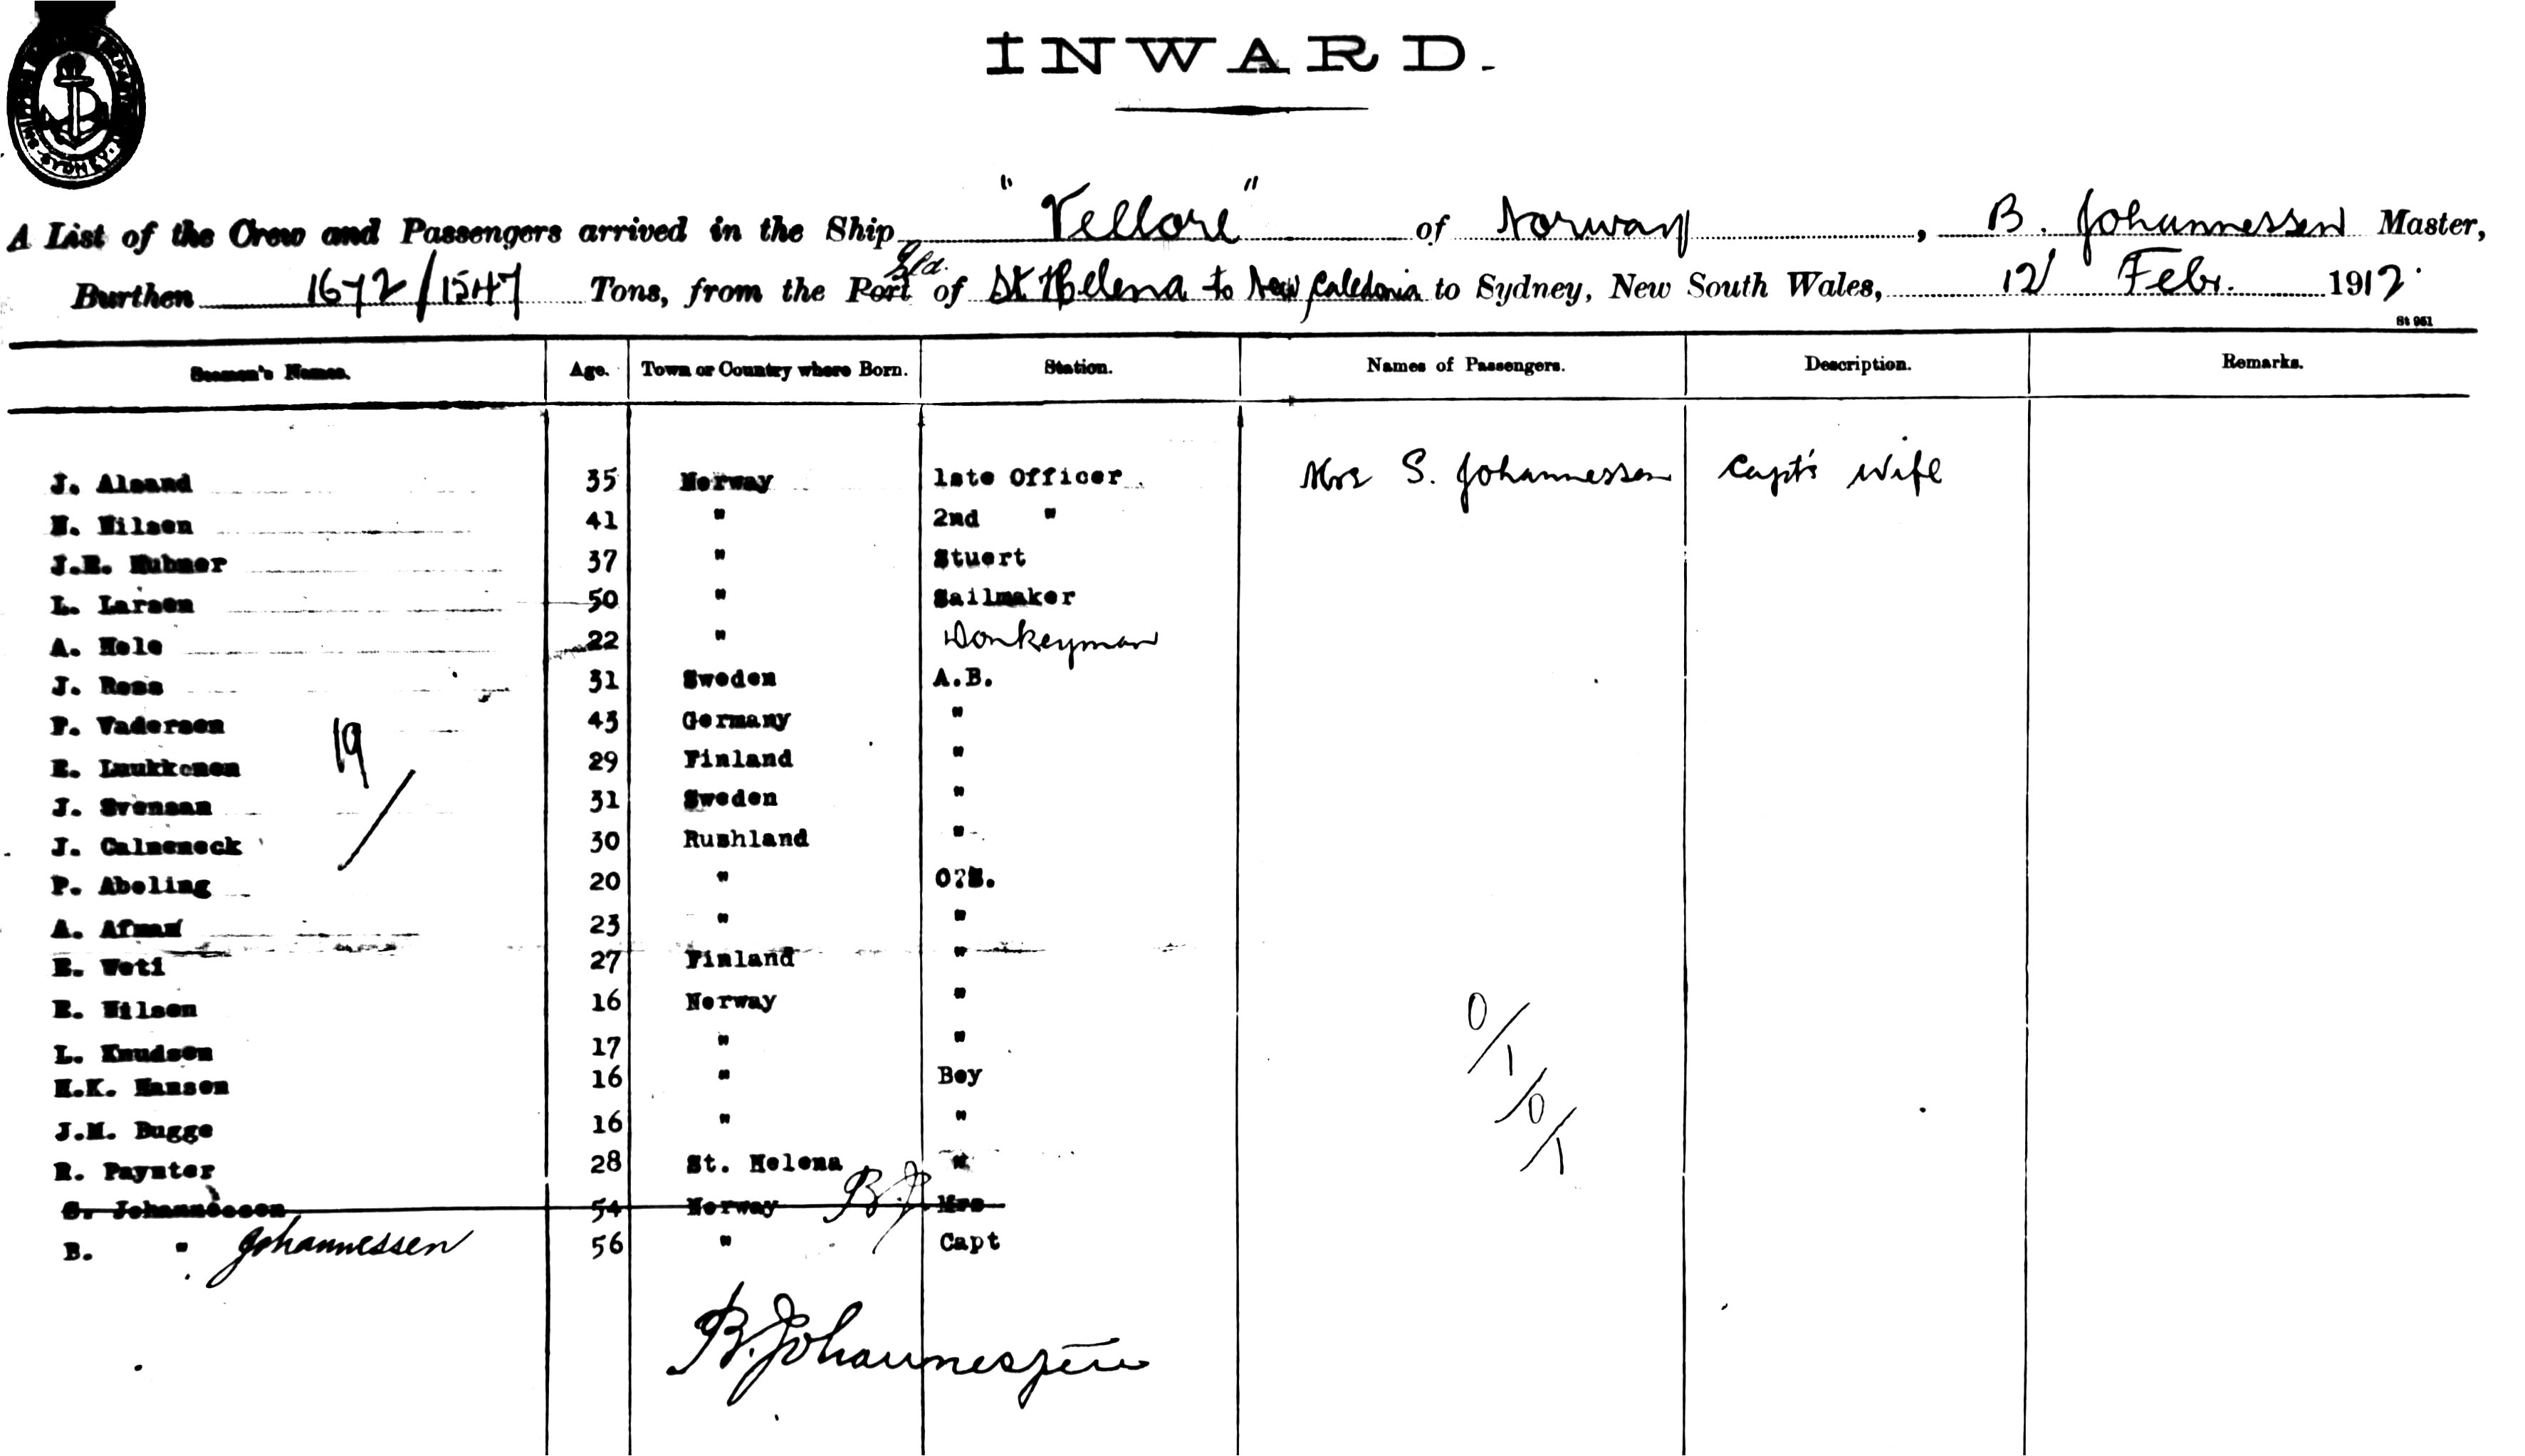 INWARD.
A List of the Crew and Passengers arrived in the Ship "Vellore" of Norway, B. Johannessen Master,
Burthen 1672/1547 Tons, from the Port of St Helena to New Caledonia to Sydney, New South Wales, 12 Febr. 1912
St 961
Seamen's Names. Age. Town or Country where Born. Station. Names of Passengers. Description. Remarks.
J. Alsand 35 Norway 1ste Officer Mrs S. Johannessen Capt's Wife
N. Nilsen 41 " 2nd "
J.E. Hubner 37 " Stuert
L. Larsen 50 " Sailmaker
A. Hole 22 " Donkeyman
J. Ross 31 Sweden A.B.
P. Vadersen 43 Germany "
E. Luukkonen 29 Finland "
19
J. Svensan 31 Sweden "
J. Calneneck 30 Rushland "
P. Abeling 20 " O?S.
A. Afman 23 " "
E. Veti 27 Finland "
E. Nilsen 16 Norway "
0/1/0/1
L. Knudsen 17 " "
H.K. Hansen 16 " Boy
J.M. Bugge 16 " "
R. Paynter 28 St. Helena "
S. Johannessen 54 Norway B.J. Mrs
B. " Johannessen 56 " Capt
B. Johannessen
SYDNEY